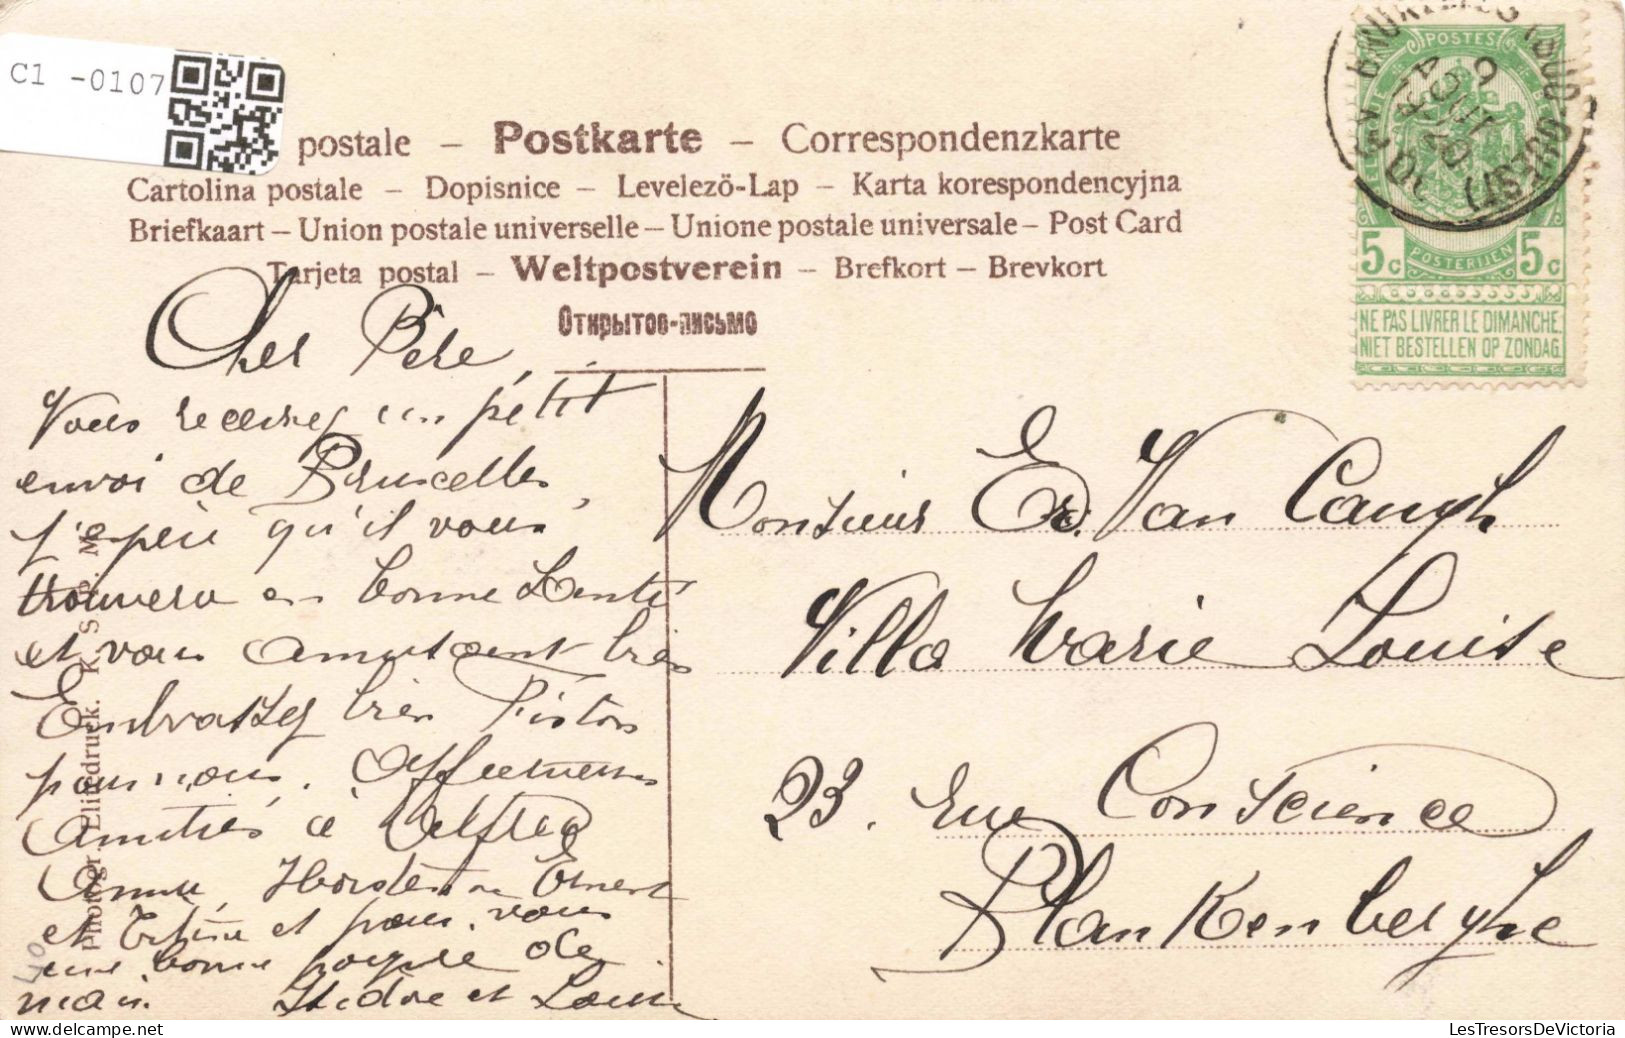 C1 -0107
postale – Postkarte – Correspondenzkarte
Cartolina postale – Dopisnice – Levelezö-Lap – Karta korespondencyjna
Briefkaart – Union postale universelle – Unione postale universale – Post Card
Tarjeta postal – Weltpostverein – Brefkort – Brevkort
Открытое-письмо
POSTES
5c POSTERIJEN 5c
NE PAS LIVRER LE DIMANCHE.
NIET BESTELLEN OP ZONDAG.
Cher Père,
Vous recevrez un petit
envoi de Bruxelles,
j'espère qu'il vous
trouvera en bonne santé
et vous amusant bien
Embrassez bien Fiston
pour nous. Affectueuses
amitiés à
et et pour vous
une bonne poignée de
main. Isidore et Louise
Monsieur Ed. Van Caugh
Villa Marie Louise
23. rue Conscience
Blankenberghe
Photogr. Elitedruck. K. S. B. M.
LesTresorsDeVictoria.com